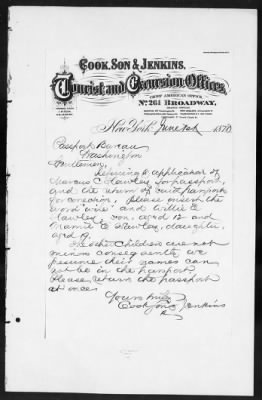 COOK, SON & JENKINS,
Tourist and Excursion Offices,
CHIEF AMERICAN OFFICE,
No. 261 BROADWAY,
New York June 1878
Passport Bureau
Washington
Gentlemen,
Referring to application of
Marcus C. Hawley, for passport,
and the return of said passport
for correction, Please insert the
word "wife" and Willie E
Hawley son, aged 12 and
Mamie E Hawley, daughter,
aged 19.
The other Children are not
minors consequently we
presume their names can
not be in the passport.
Please return the passport
at once.
Yours truly
Cook Son & Jenkins